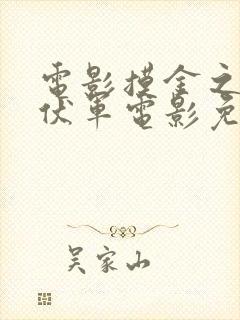 電影摸金之
伏軍電影免
吴家山